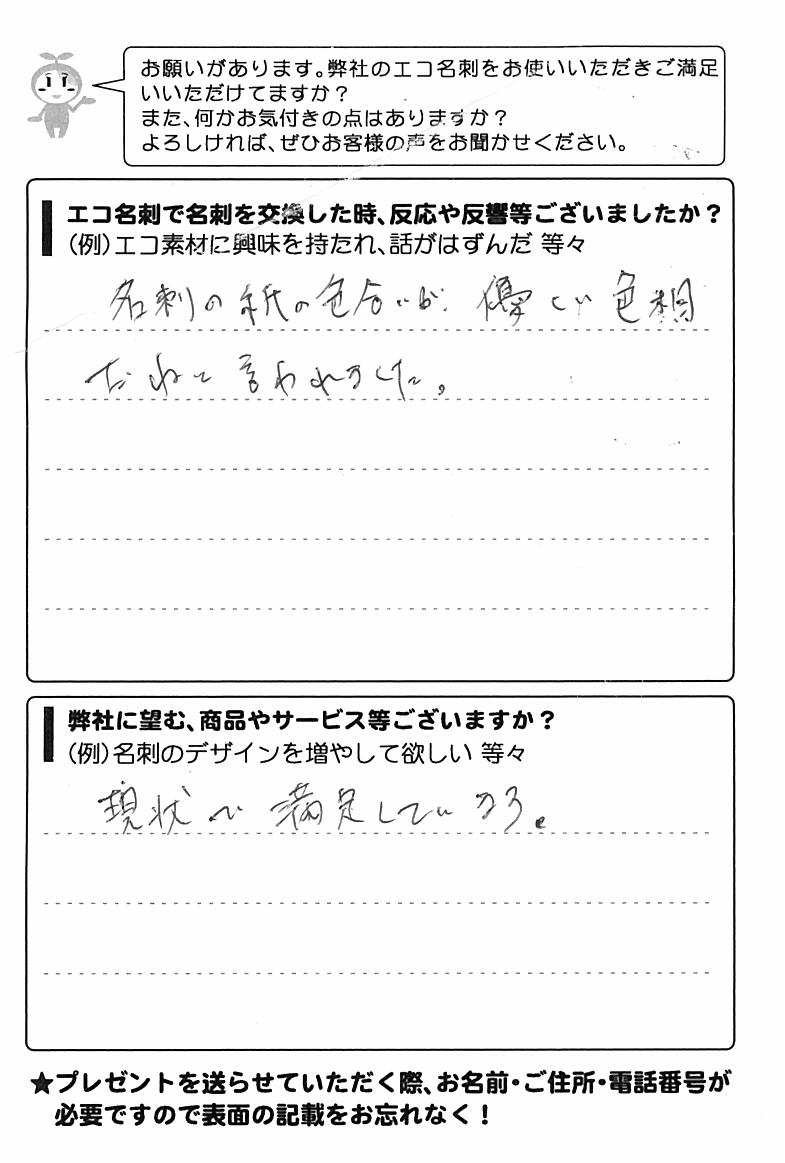 お願いがあります。弊社のエコ名刺をお使いいただきご満足
いいただけてますか？
また、何かお気付きの点はありますか？
よろしければ、ぜひお客様の声をお聞かせください。
エコ名刺で名刺を交換した時、反応や反響等ございましたか？
（例）エコ素材に興味を持たれ、話がはずんだ 等々
名刺の紙の色合いが 優しい色相
だねと言われました。
弊社に望む、商品やサービス等ございますか？
（例）名刺のデザインを増やして欲しい 等々
現状で満足している。
★プレゼントを送らせていただく際、お名前・ご住所・電話番号が
必要ですので表面の記載をお忘れなく！